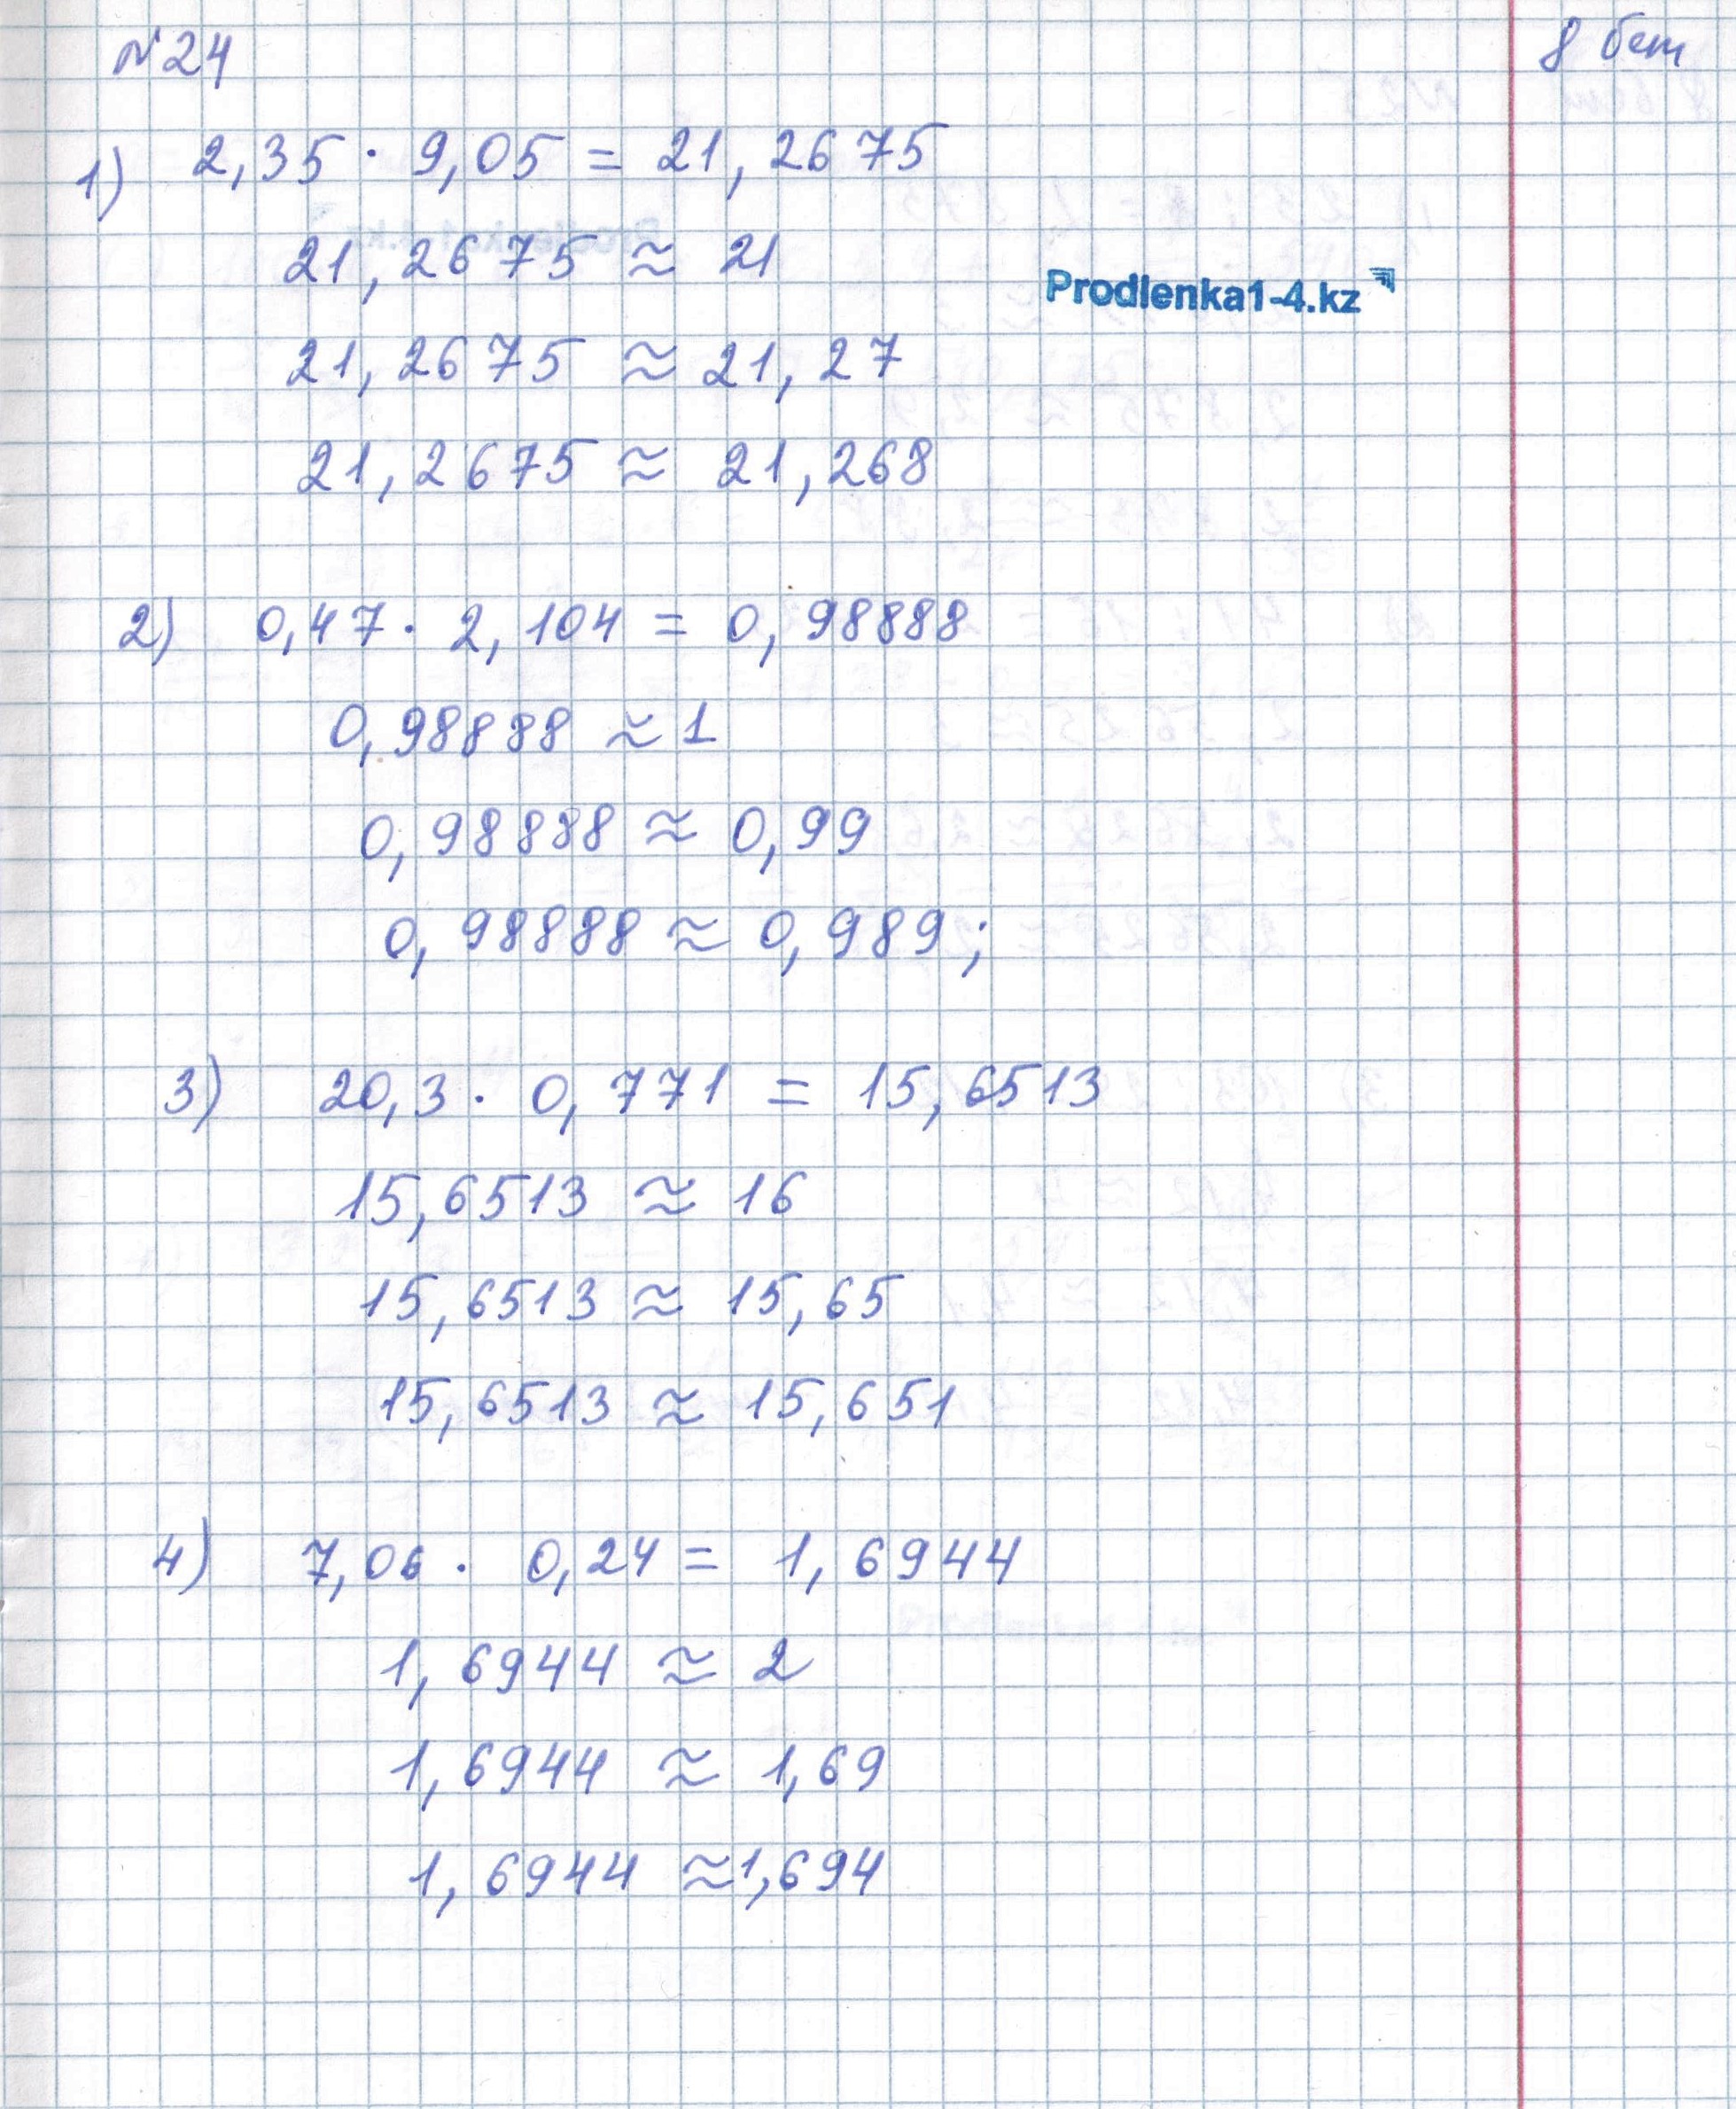 №24
8 бет
1) 2,35 · 9,05 = 21,2675
21,2675 ≈ 21
Prodlenka1-4.kz
21,2675 ≈ 21,27
21,2675 ≈ 21,268
2) 0,47 · 2,104 = 0,98888
0,98888 ≈ 1
0,98888 ≈ 0,99
0,98888 ≈ 0,989;
3) 20,3 · 0,771 = 15,6513
15,6513 ≈ 16
15,6513 ≈ 15,65
15,6513 ≈ 15,651
4) 7,06 · 0,24 = 1,6944
1,6944 ≈ 2
1,6944 ≈ 1,69
1,6944 ≈ 1,694